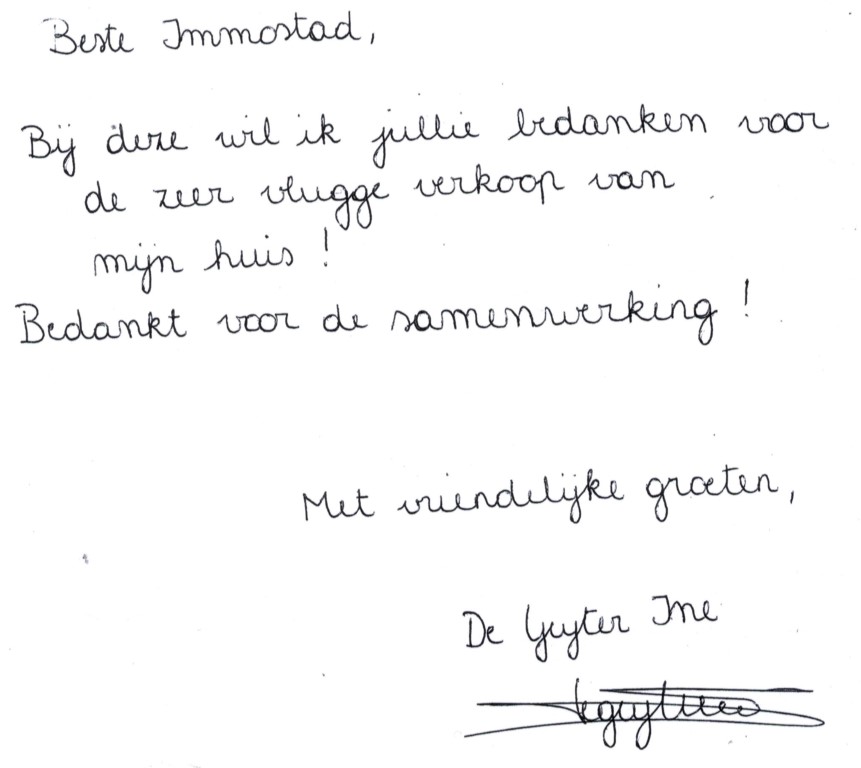 Beste Immostad,
Bij deze wil ik jullie bedanken voor
de zeer vlugge verkoop van
mijn huis !
Bedankt voor de samenwerking !
Met vriendelijke groeten,
De Guyter Ine